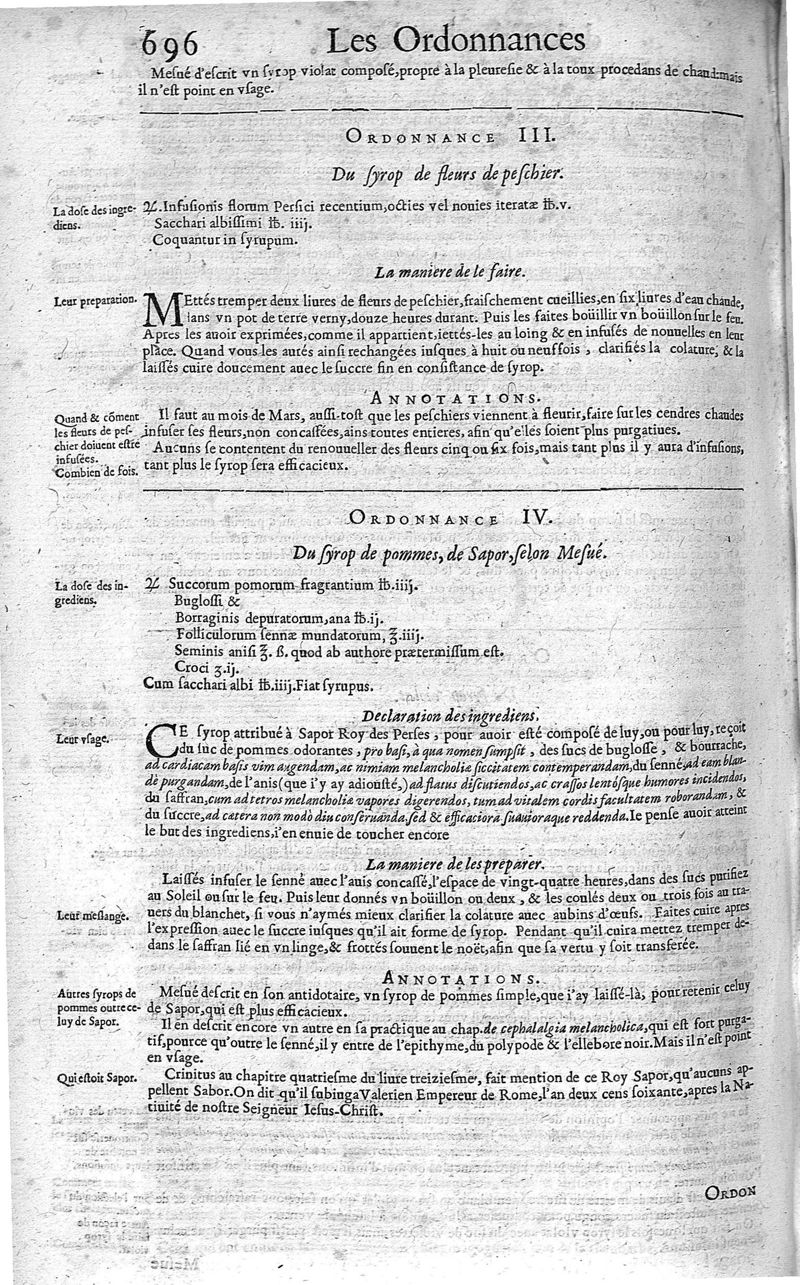 696 Les Ordonnances
Mesué d'escrit vn syrop violat composé, propre à la pleuresie & à la toux procedans de chaud:mais
il n'est point en vsage.
ORDONNANCE III.
Du syrop de fleurs de peschier.
La dose des ingre-
diens.
℞.Infusionis florum Persici recentium, octies vel nouies iteratæ ℔.v.
Sacchari albissimi ℔. iiij.
Coquantur in syrupum.
La maniere de le faire.
Leur preparation.
MEttés tremper deux liures de fleurs de peschier, fraischement cueillies, en six liures d'eau chaude,
dans vn pot de terre verny, douze heures durant. Puis les faites boüillir vn boüillon sur le feu.
Apres les auoir exprimées, comme il appartient, iettés-les au loing & en infusés de nouuelles en leur
place. Quand vous les aurés ainsi rechangées iusques à huit ou neuf fois, clarifiés la colature, & la
laissés cuire doucement auec le succre fin en consistance de syrop.
ANNOTATIONS.
Quand & cõment
les fleurs de pes-
chier doiuent estre
infusées.
Combien de fois.
Il faut au mois de Mars, aussi-tost que les peschiers viennent à fleurir, faire sur les cendres chaudes
infuser ses fleurs, non concassées, ains toutes entieres, afin qu'elles soient plus purgatiues.
Aucuns se contentent du renouueller des fleurs cinq ou six fois, mais tant plus il y aura d'infusions,
tant plus le syrop sera efficacieux.
ORDONNANCE IV.
Du syrop de pommes, de Sapor, selon Mesué.
La dose des in-
grediens.
℞ Succorum pomorum fragrantium ℔.iiij.
Buglossi &
Borraginis depuratorum, ana ℔.ij.
Folliculorum sennæ mundatorum, ℥.iiij.
Seminis anisi ℥. ß. quod ab authore prætermissum est.
Croci ʒ.ij.
Cum sacchari albi ℔.iiij. Fiat syrupus.
Declaration des ingredient.
Leur vsage.
CE syrop attribué à Sapor Roy des Perses, pour auoir esté composé de luy, ou pour luy, reçoit
du suc de pommes odorantes, pro basi, à qua nomen sumpsit, des sucs de buglosse, & bourrache,
ad cardiacam basis vim augendam, ac nimiam melancholiæ siccitatem contemperandam, du senné, ad eam blan-
dè purgandam, de l'anis (que i'y ay adiousté,) ad flatus discutiendos, ac crassos lentósque humores incidendos,
du saffran, cum ad tetros melancholiæ vapores digerendos, tum ad vitalem cordis facultatem roborandam, &
du succre, ad cætera non modò diu conseruanda, sed & efficaciora suauioraque reddenda. Ie pense auoir atteint
le but des ingrediens, i'en enuie de toucher encore
La maniere de les preparer.
Leur meslange.
Laissés infuser le senné auec l'anis concassé, l'espace de vingt-quatre heures, dans des sucs purifiez
au Soleil ou sur le feu. Puis leur donnés vn boüillon ou deux, & les coulés deux ou trois fois au tra-
uers du blanchet, si vous n'aymés mieux clarifier la colature auec aubins d'œufs. Faites cuire apres
l'expression auec le succre iusques qu'il ait forme de syrop. Pendant qu'il cuira mettez tremper de-
dans le saffran lié en vn linge, & frottés souuent le noët, afin que sa vertu y soit transferée.
ANNOTATIONS.
Autres syrops de
pommes outre ce-
luy de Sapor.
Mesué descrit en son antidotaire, vn syrop de pommes simple, que i'ay laissé-là, pour retenir celuy
de Sapor, qui est plus efficacieux.
Il en descrit encore vn autre en sa practique au chap. de cephalalgia melancholica, qui est fort purga-
tif, pource qu'outre le senné, il y entre de l'epithyme, du polypode & l'ellebore noir. Mais il n'est point
en vsage.
Qui estoit Sapor.
Crinitus au chapitre quatriesme du liure treiziesme, fait mention de ce Roy Sapor, qu'aucuns ap-
pellent Sabor. On dit qu'il subiuga Valerien Empereur de Rome, l'an deux cens soixante, apres la Na-
tiuité de nostre Seigneur Iesus-Christ.
ORDON